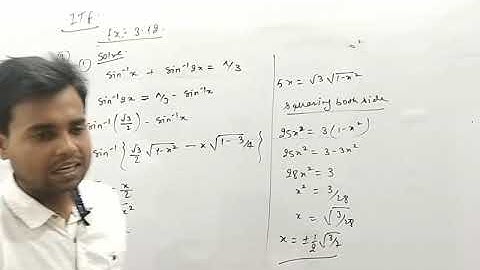 ITF
Ex = 3.18
① Solve
sin⁻¹x + sin⁻¹2x = π/3
sin⁻¹2x = π/3 - sin⁻¹x
sin⁻¹(√3/2) - sin⁻¹x
sin⁻¹{√3/2 √1-x² - x√1-3/2}
- x/2
x²
5x = √3 √1-x²
Squaring both side
25x² = 3(1-x²)
25x² = 3-3x²
28x² = 3
x² = 3/28
x = √3/28
x = ± 1/2 √3/2